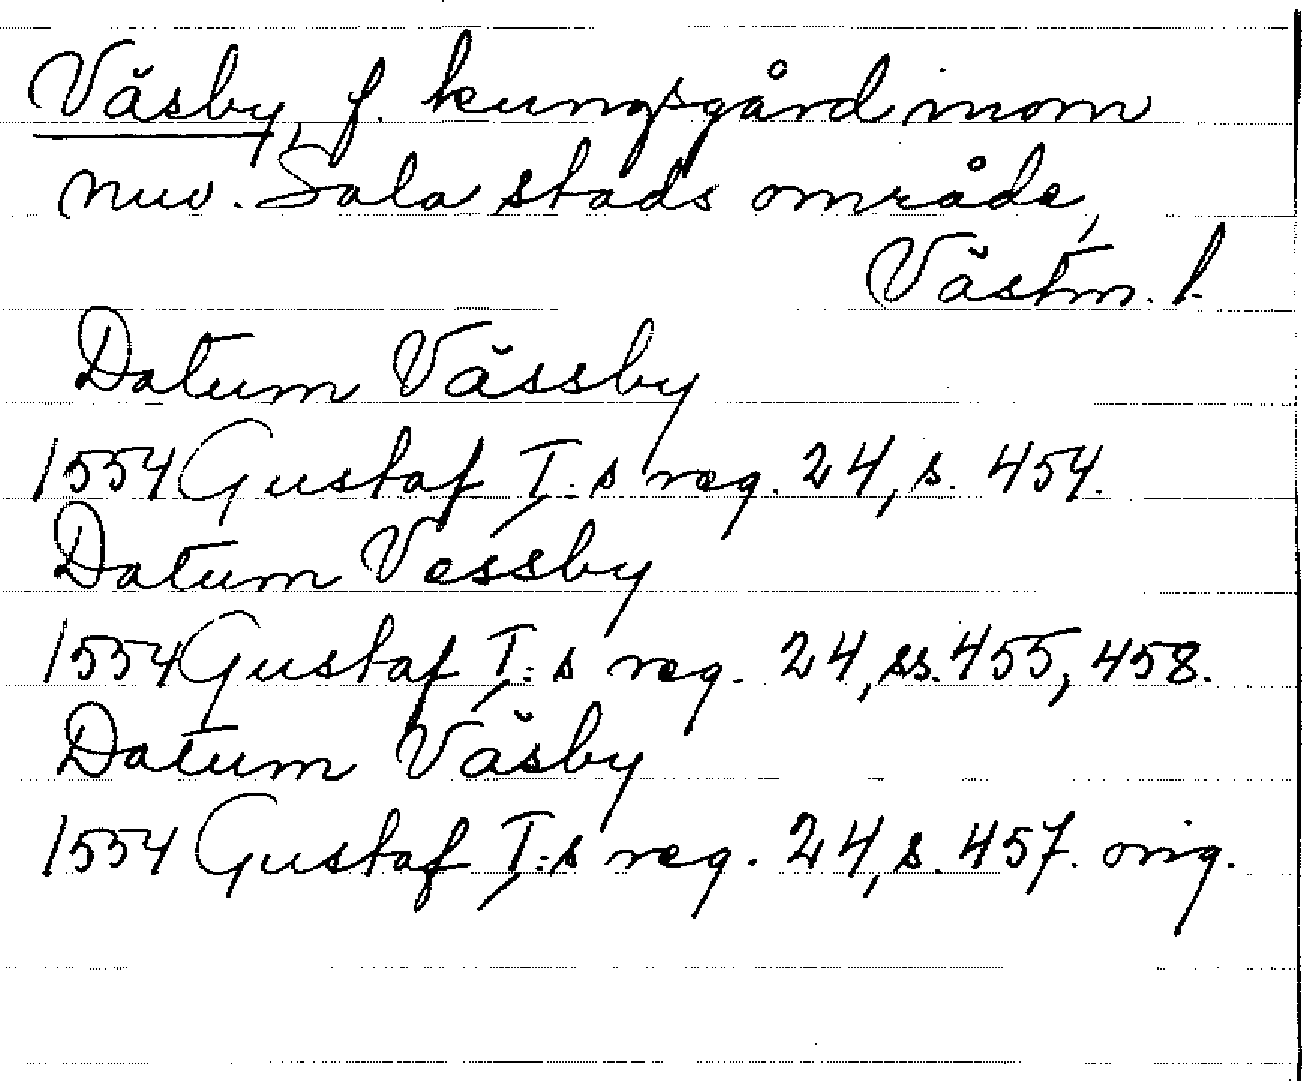 Väsby, f. kungsgård inom
nuv. Sala stads område,
Västm. l.
Datum Vässby
1554 Gustaf I:s reg. 24, s. 454.
Datum Vessby
1554 Gustaf I:s reg. 24, ss. 455, 458.
Datum Väsby
1554 Gustaf I:s reg. 24, s. 457. orig.